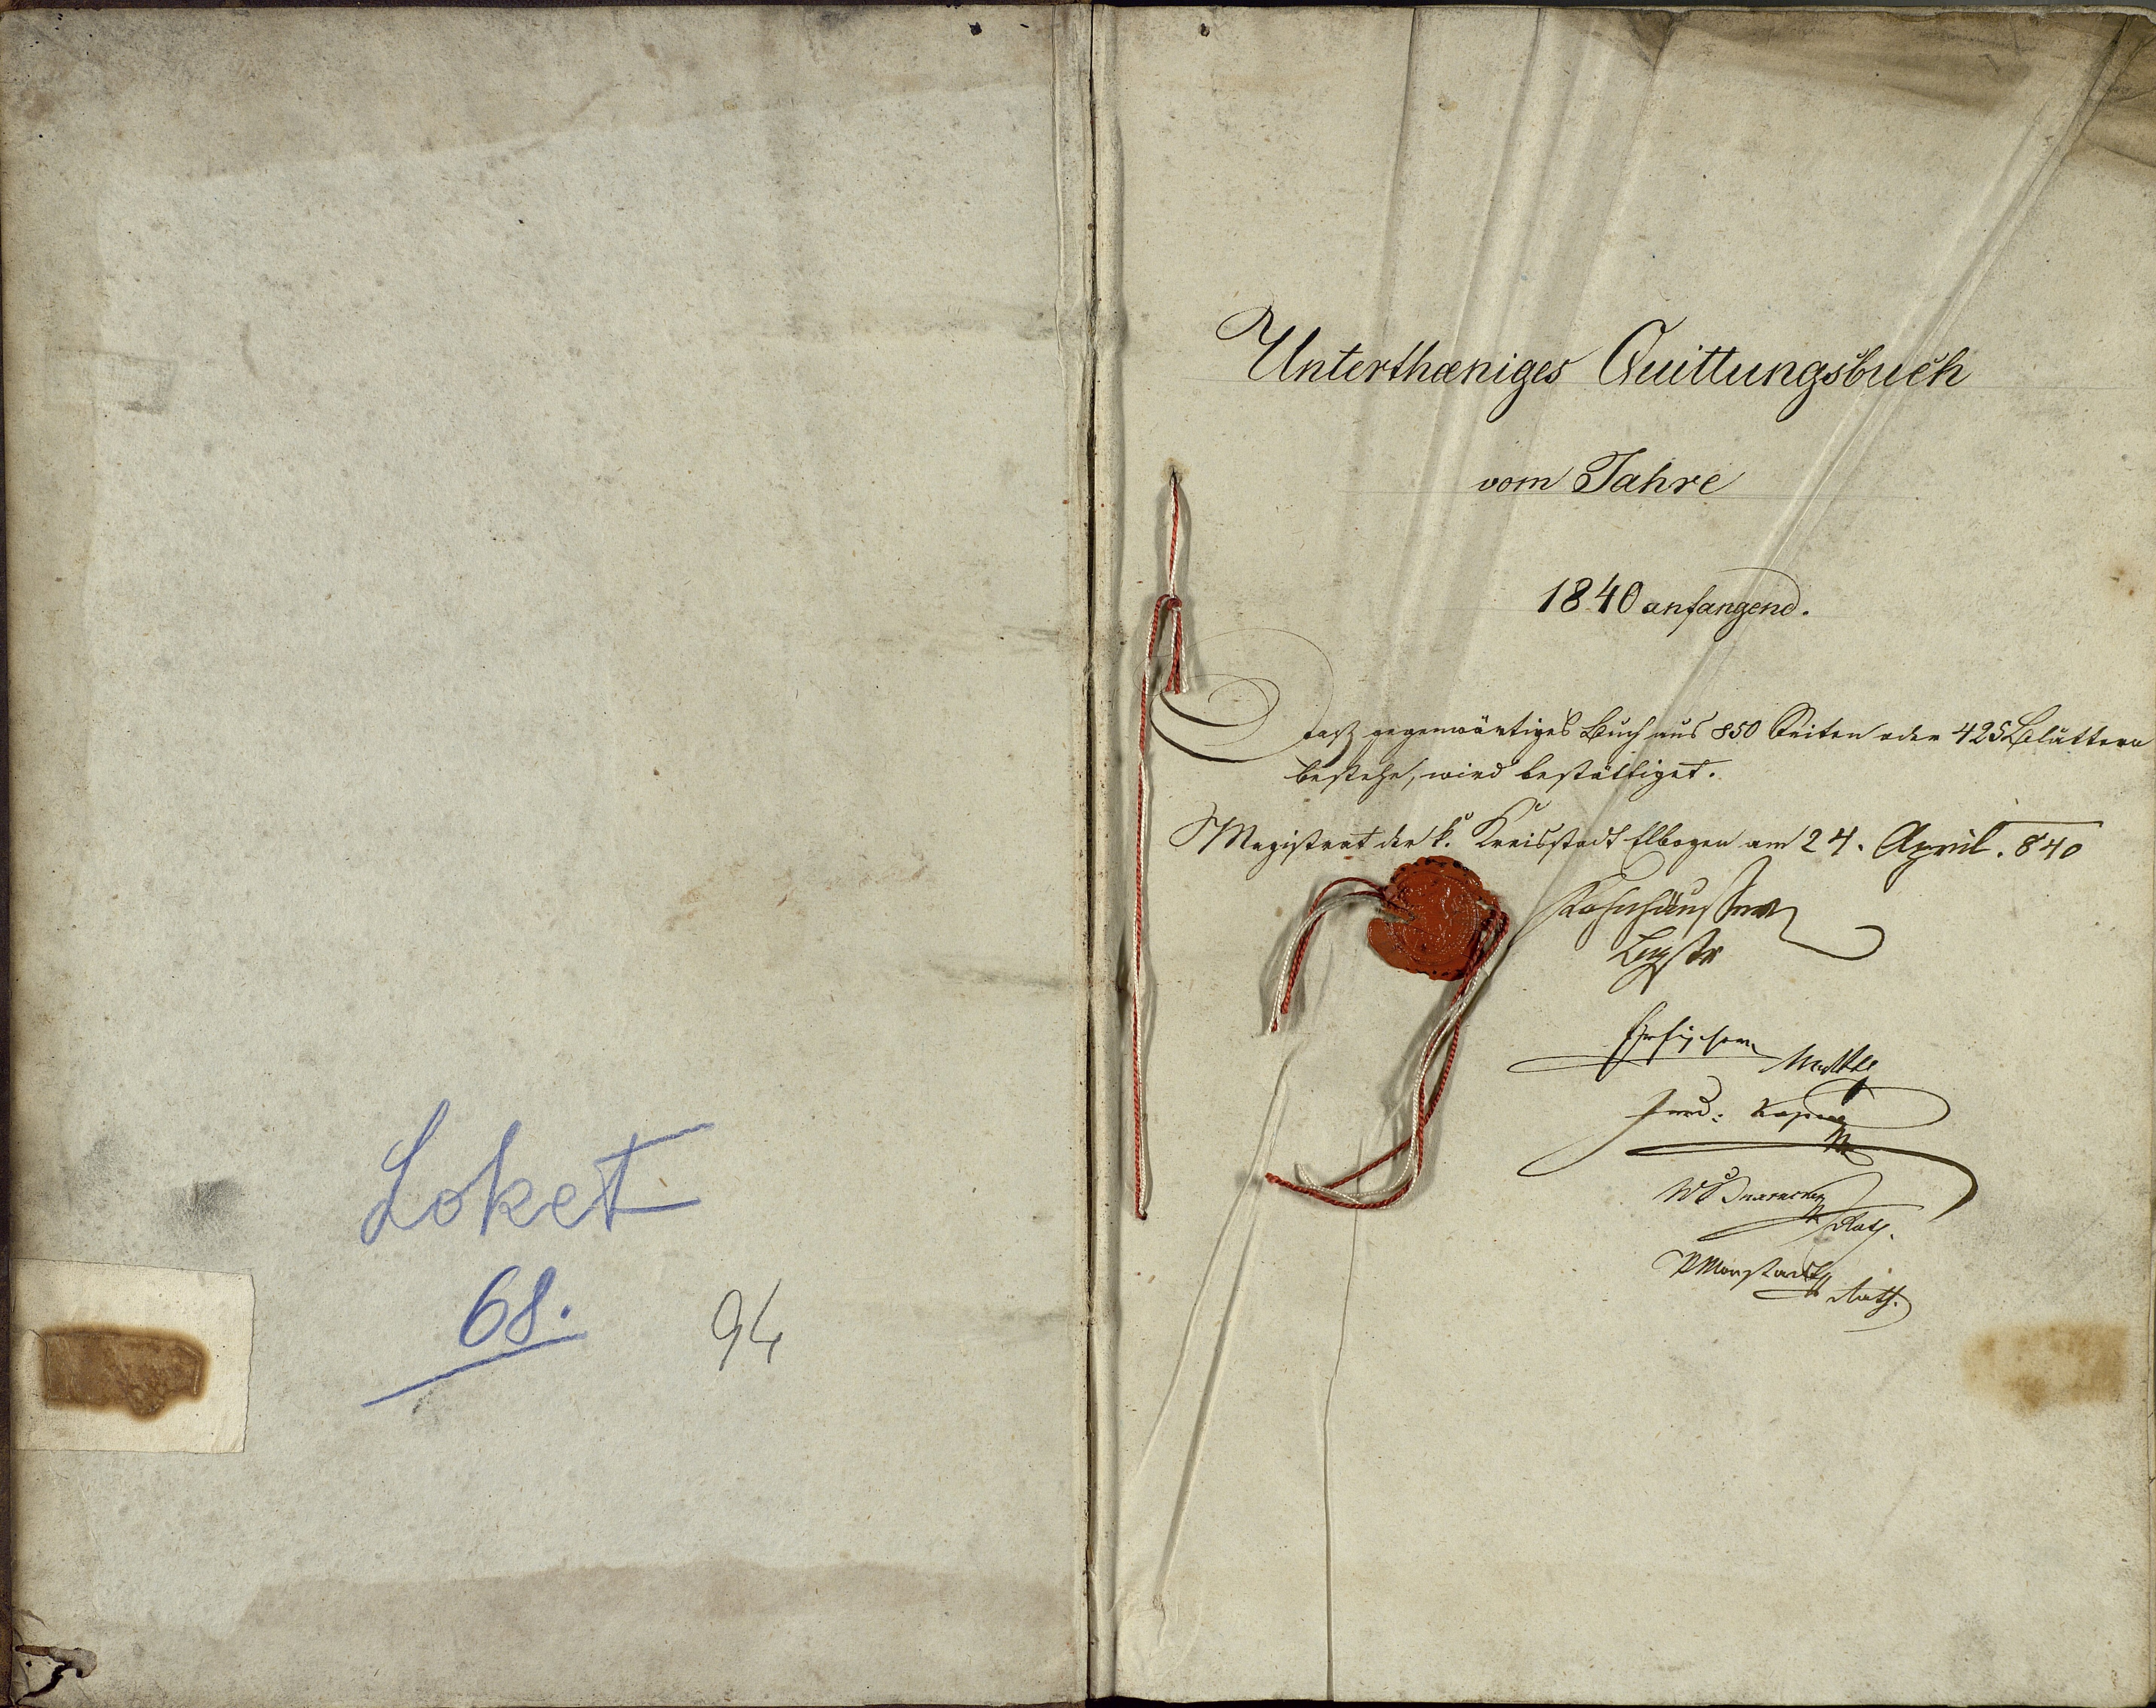 Loket
68.
94
Unterthæniges Quittungsbuch
vom Jahre
1840 anfangend.
Daß gegenwärtiges Buch aus 850 Seiten oder 425 Blättern
bestehe, wird bestättiget.
Magistrat der k. Kreisstadt Elbogen am 24. April. 840
Ferd:
Rath.
Rath.